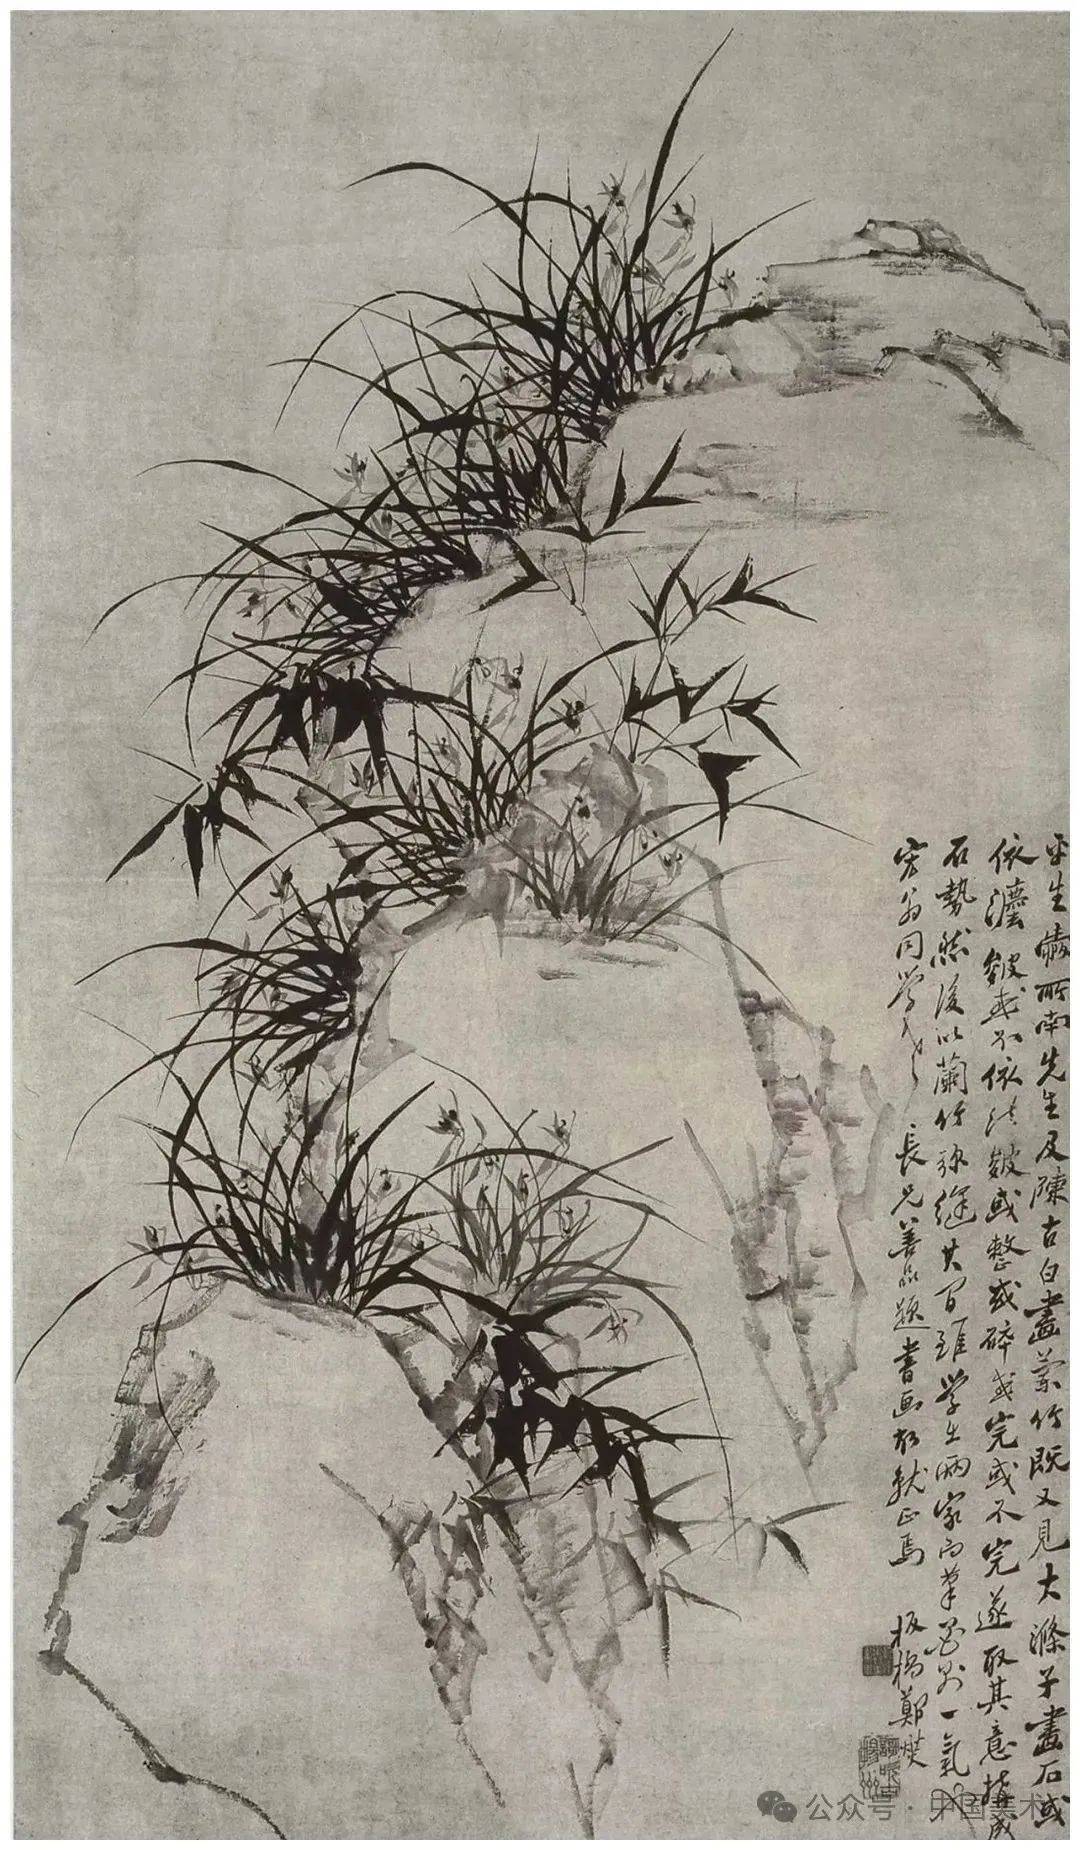 平生愛所南先生及陳古白畫蘭竹既又見大滌子畫石或
依灋皴或不依法皴或整或碎或完或不完遂取其意搆成
石勢然後以蘭竹弥縫其間雖學出兩家而筆墨則一氣也
宏翁同學老長兄善品題書画故就正焉 板橋鄭燮
歌吹古揚州
公众号 · 中国美术